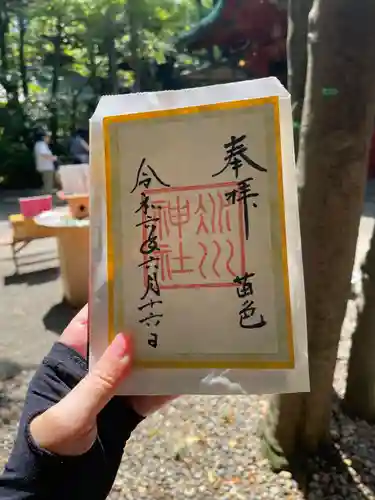 奉拝
苗色
氷川
神社
令和六年六月十六日